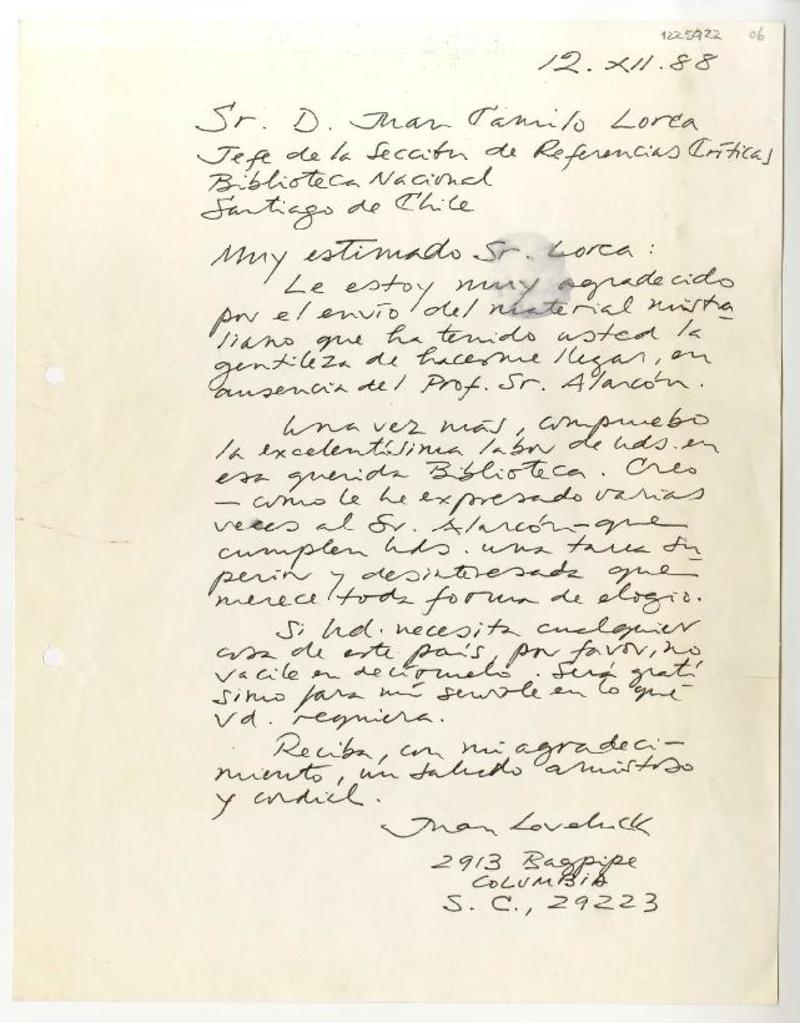 1225922 06
12.XII.88
Sr. D. Juan Camilo Lorca
Jefe de la Sección de Referencias Críticas
Biblioteca Nacional
Santiago de Chile
Muy estimado Sr. Lorca:
Le estoy muy agradecido
por el envío del material mistra-
liano que ha tenido usted la
gentileza de hacerme llegar, en
ausencia del Prof. Sr. Alarcón.
Una vez más, compruebo
la excelentísima labor de Uds. en
esa querida Biblioteca. Creo
— como le he expresado varias
veces al Sr. Alarcón — que
cumplen Uds. una tarea su-
perior y desinteresada que
merece toda forma de elogio.
Si Ud. necesita cualquier
cosa de este país, por favor, no
vacile en decírmelo. Será gratí
simo para mí servirle en lo que
Vd. requiera.
Reciba, con mi agradeci-
miento, un saludo amistoso
y cordial.
Juan Loveluck
2913 Bagpipe
COLUMBIA
S. C., 29223